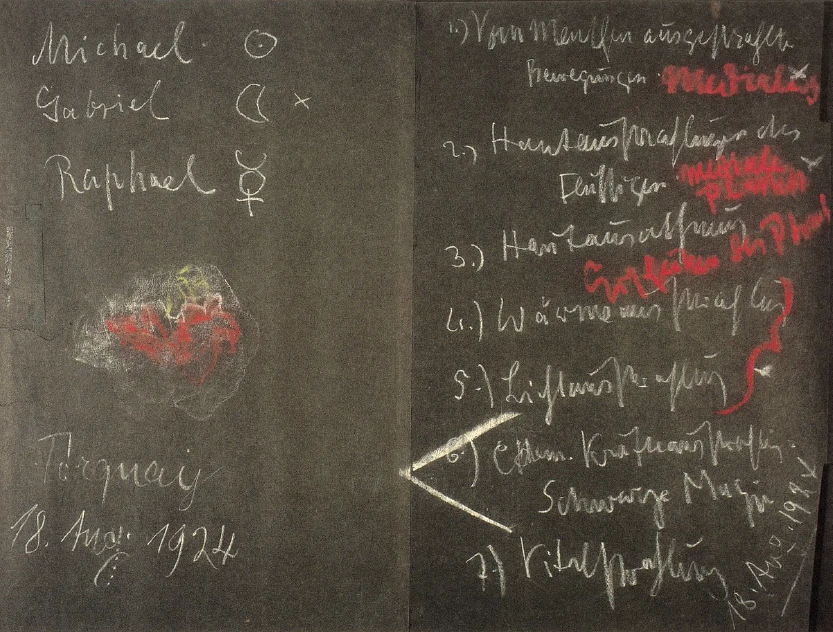 Michael ☉
Gabriel ☾ ×
Raphael ☿
Torquay
18. Aug. 1924
1.) Vom Menschen ausgestrahlte
Bewegungen
2.) Hautausstrahlungen des
Flüssigen
3.) Hautausathmung
4.) Wärmeausstrahlung
5.) Lichtausstrahlung
6.) Chem. Kräfteausstrahlung
Schwarze Magie
7.) Vitalstrahlung
18. Aug. 1924